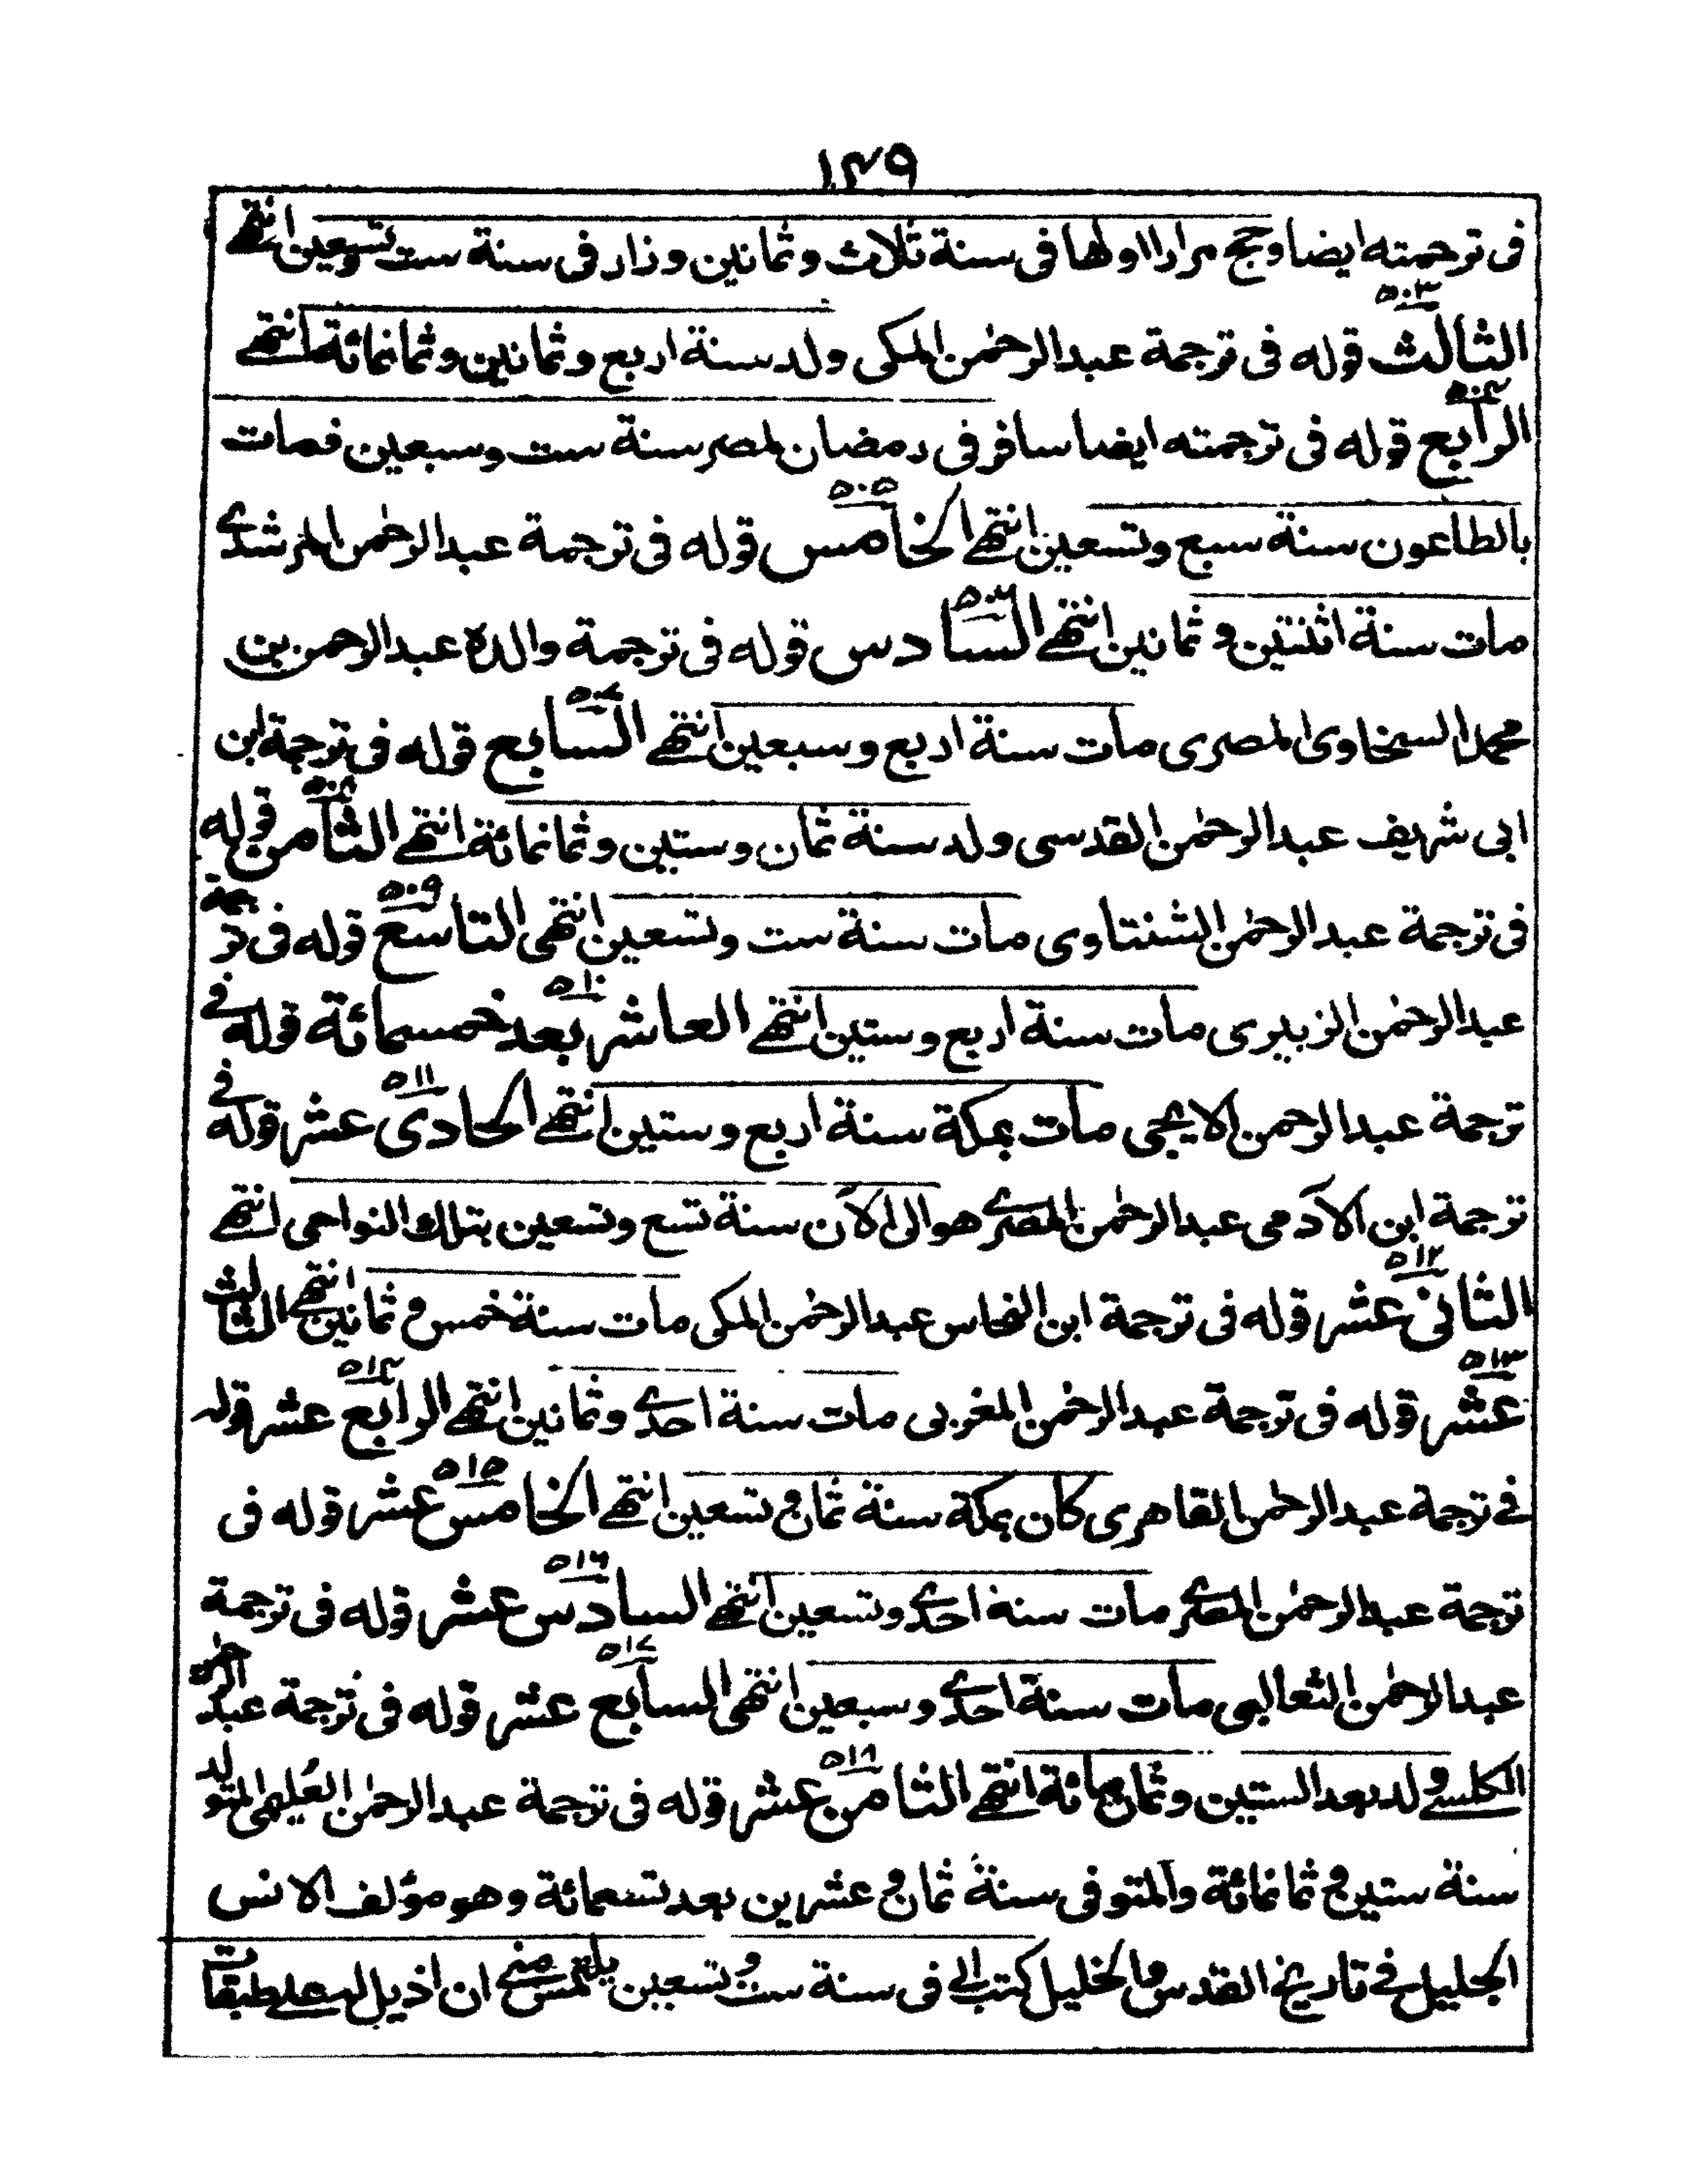 ١٤٩
فى ترجمته ايضا وحج مرارا اولها فى سنة ثلاث وثمانين وزار فى سنة ست وتسعين انتهى
٥٠٣
الثالث قوله فى ترجمة عبد الرحمٰن المكى ولد سنة اربع وثمانين وثمانمائة انتهى
٥٠٤
الرابع قوله فى ترجمته ايضا سافر فى رمضان لمصر سنة ست وسبعين فمات
٥٠٥
بالطاعون سنة سبع وتسعين انتهى الخامس قوله فى ترجمة عبد الرحمٰن المرشدى
٥٠٦
مات سنة اثنتين وثمانين انتهى السادس قوله فى ترجمة والده عبد الرحمن بن
٥٠٧
محمد السخاوى المصرى مات سنة اربع وسبعين انتهى السابع قوله فى ترجمة ابن
٥٠٨
ابى شريف عبد الرحمٰن القدسى ولد سنة ثمان وستين وثمانمائة انتهى الثامن قوله
٥٠٩
فى ترجمة عبد الرحمٰن الشنتاوى مات سنة ست وتسعين انتهى التاسع قوله فى ترجمة
٥١٠
عبد الرحمٰن الزبيرى مات سنة اربع وستين انتهى العاشر بعد خمسمائة قوله فى
٥١١
ترجمة عبد الرحمن الايجى مات بمكة سنة اربع وستين انتهى الحادى عشر قوله فى
ترجمة ابن الآدمى عبد الرحمٰن المصرى هو الى الآن سنة تسع وتسعين بتلك النواحى انتهى
٥١٢
الثانى عشر قوله فى ترجمة ابن النحاس عبد الرحمٰن المكى مات سنة خمس وثمانين انتهى الثالث
٥١٣
عشر قوله فى ترجمة عبد الرحمٰن المغربى مات سنة احدى وثمانين انتهى الرابع عشر قوله
٥١٤
فى ترجمة عبد الرحمٰن القاهرى كان بمكة سنة ثمان وتسعين انتهى الخامس عشر قوله فى
٥١٥
ترجمة عبد الرحمٰن المصرى مات سنة احدى وتسعين انتهى السادس عشر قوله فى ترجمة
٥١٦
عبد الرحمٰن الثعالبى مات سنة احدى وسبعين انتهى السابع عشر قوله فى ترجمة عبد الرحمٰن
٥١٧
الكلسى ولد بعد الستين وثمان مائة انتهى الثامن عشر قوله فى ترجمة عبد الرحمٰن العُليمى المتولد
٥١٨
سنة ستين وثمانمائة والمتوفى سنة ثمان وعشرين بعد تسعمائة وهو مؤلف الانس
الجليل فى تاريخ القدس والخليل كتب الى فى سنة ست وتسعين يلتمس منى ان اذيل له على طبقات